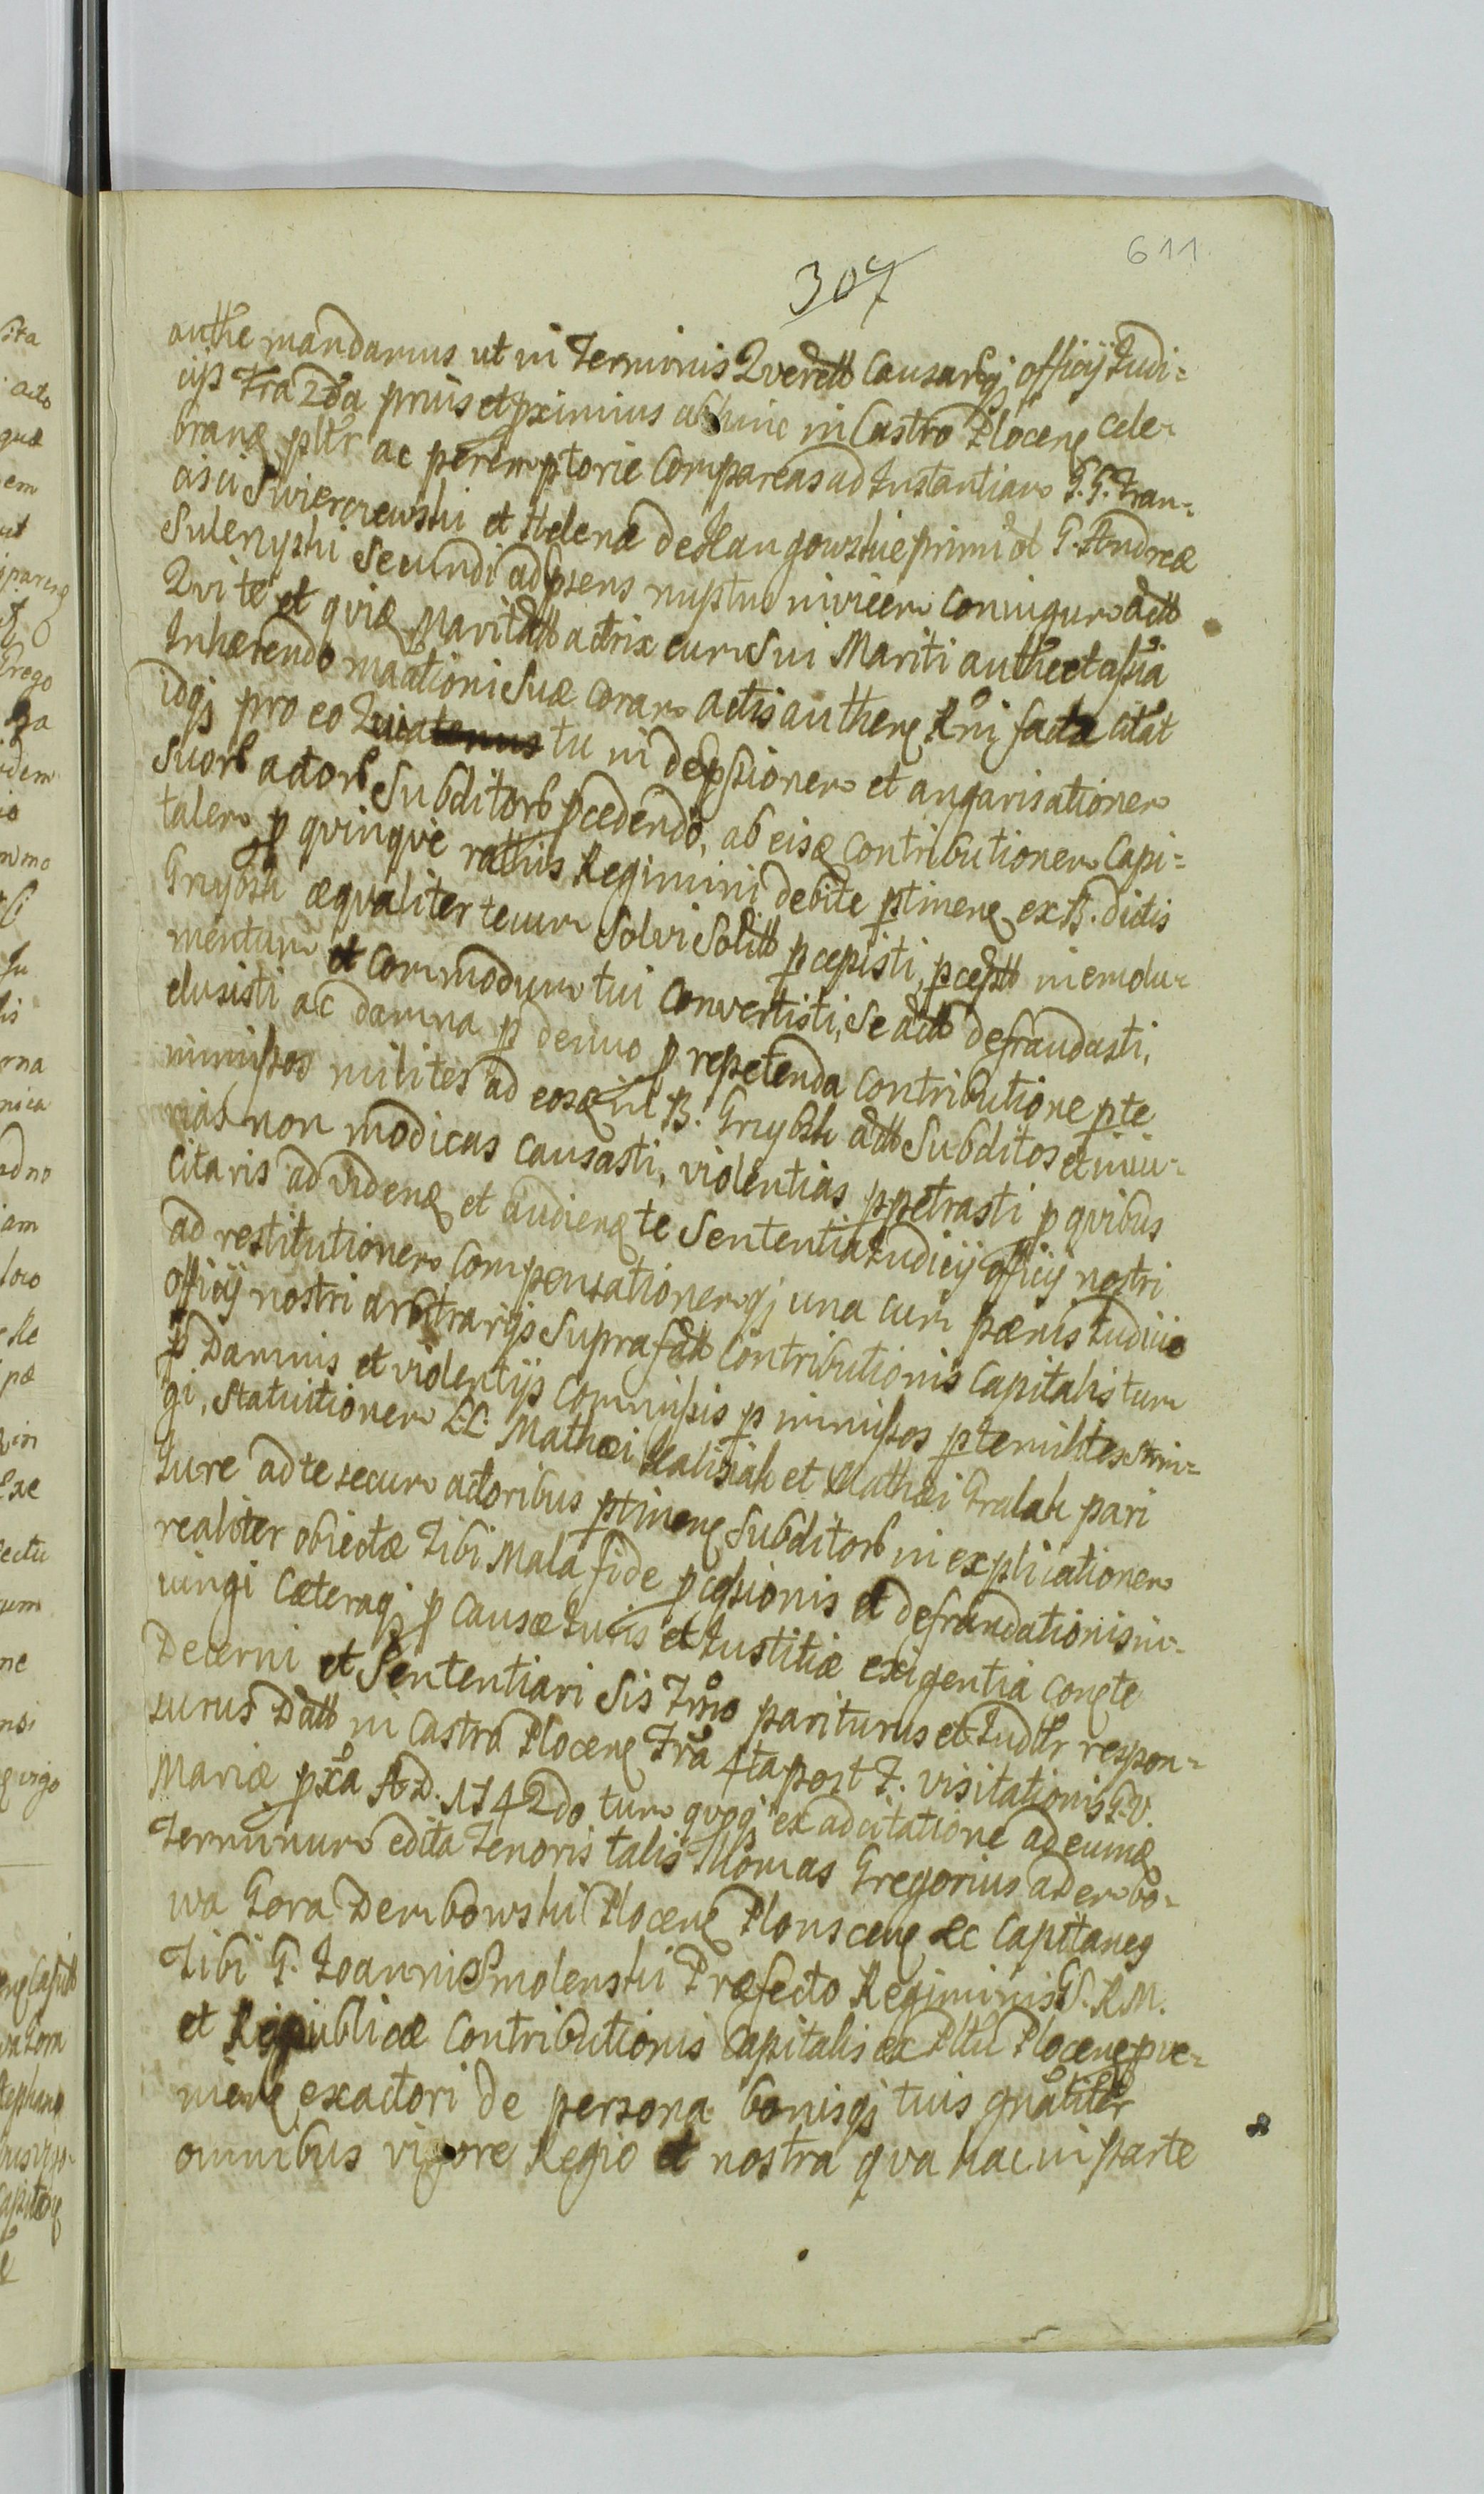 611
307
authe mandamus ut in Terminis Querell Causarqj officij Judi=
cijs Fra 2da prius et pximius abhinc in Castro Plocen cele-
bran pltr ac peremptorie Compareas ad Instantiam G. G. Fran=
cisci Swierczewski et Helenæ de Langowskie primi ol G. Andreæ
Sulenyski Secundi ad psens nuptuo invicem Coniugum actt
Qui te et quiæ Maritatt actrix cum Sui Mariti authe et assia
Inhærendo maationi Suæ Coram Actis authen Rni facta citat
idqj pro eo Quia tu in depssionem et angarisationem
Suorb actorb Subditorb pcedendo, ab eisd Contributionem Capi=
talem p quinque rathis Regimini debite ptinen ex B. dictis
Grzybki æqualiter tecum Solvi Solitt pcepisti, pceptt in emolu-
mentum et Commodum tui Convertisti, Se actt defraudasti,
elusisti ac damna p denuo p repetenda Contributione pte
immissos milites ad eosd in B. Grzybki actt Subditos et iniu-
rias non modicas causasti, violentias ppetrasti p quibus
Citaris ad viden et audien te Sententia Judicij officij nostri
ad restitutionem Compensationemqj una cum pænis Judicio
officij nostri arbitrarijs Suprafatt Contributionis Capitalis tum
p Damnis et violentijs Commissis p immissos pte milites stri-
gi, Statuitionem LL. Mathæi Kalisiak et Mathæi Gralak pari
Iure ad te secum actoribus ptinen Subditorb in explicationem
realiter obiectæ Tibi Mala fide pcessionis et defraudationis in-
iungi Cæteraqj p Causæ Juris et Justitiæ exigentia Con te
Decerni et Sententiari Sis Tmo pariturus et Judltr respon-
surus Datt in Castro Plocen Fra 4ta post F. visitationis B. V.
Mariæ pxa A. D. 1742do tum quoqj ex adcitatione ad eumd
Terminum edita Tenoris talis Thomas Gregorius a Dembo-
wa Gora Dembowski Plocen Plonscen &c Capitaneg
Tibi G. Joannis Smolenski Præfecto Regiminis S. R. M.
et Reipublicæ Contributionis Capitalis ex Pltu Plocen pve-
nien exactori de persona bonisqj tuis gnaliter
omnibus vigore Regio et nostra qua hac in parte